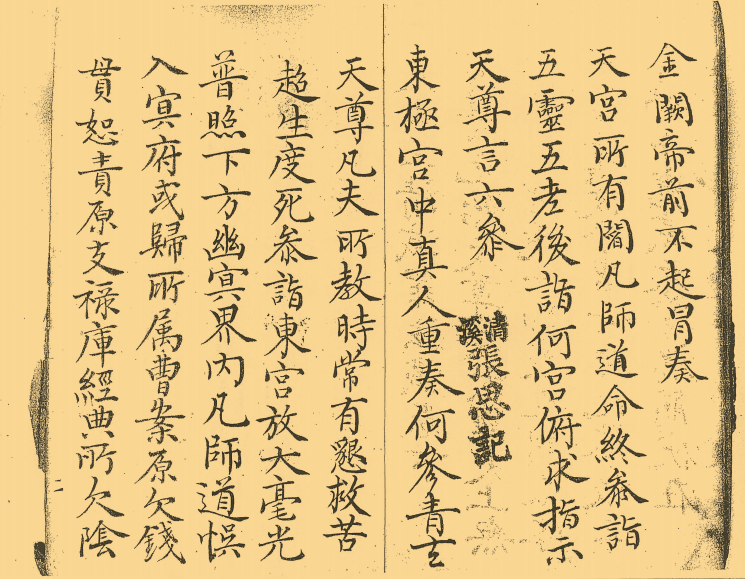 金闕帝前不起冐奏
天宮所有閣凡師道命終叅詣
五靈五老後詣何宮俯求指示
天尊言六叅
清溪張思記
東極宮中真人重奏何叅青玄
天尊凡夫所教時常有懇救苦
超生度死叅詣東宮放大毫光
普照下方幽冥界內凡師道悞
入冥府或歸所属曹案原欠錢
貫恕責原支祿庫經典所欠陰
二